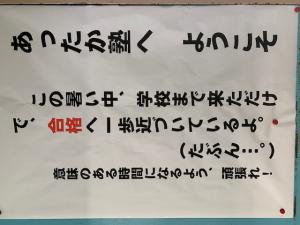 あったか塾へ ようこそ
この暑い中、学校まで来ただけ
で、合格へ一歩近づいているよ。
(たぶん…。)
意味のある時間になるよう、頑張れ!